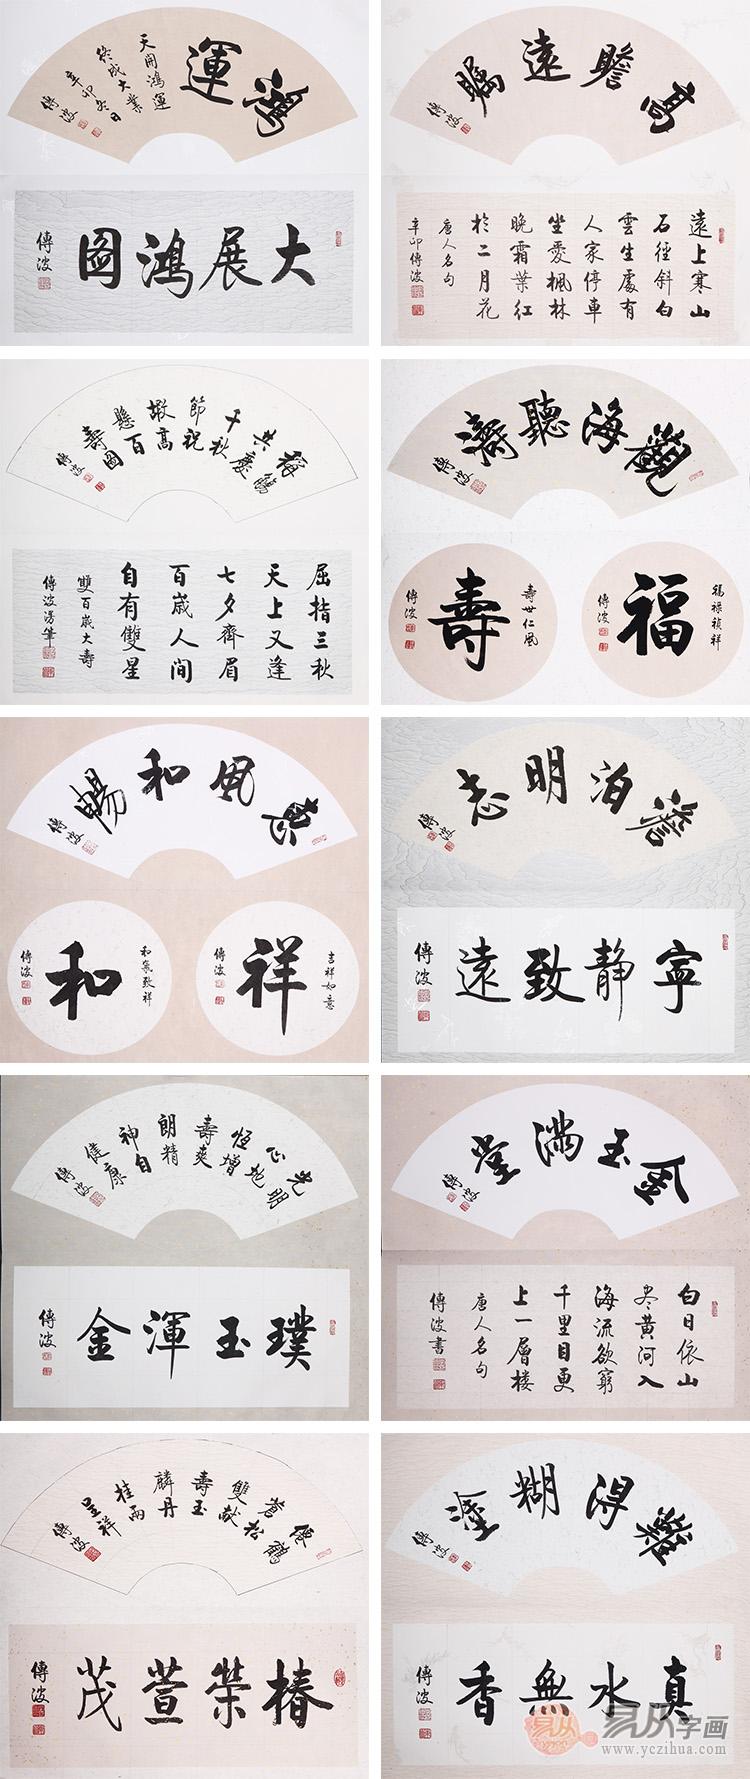 鴻運
天開鴻運
終成大業
辛卯冬日
傳波
大展鴻圖
傳波
高瞻遠瞩
傳波
遠上寒山
石徑斜白
雲生處有
人家停車
坐愛楓林
晚霜葉紅
於二月花
唐人名句
辛卯傳波
稱觴
共慶
千秋
節祝
嘏高
懸百
壽圖
傳波
屈指三秋
天上又逢
七夕齊眉
百歲人間
自有雙星
雙百歲大壽
傳波
觀海聽濤
傳波
福祿禎祥
福
傳波
壽世仁風
壽
傳波
惠風和暢
傳波
吉祥如意
祥
傳波
和氣致祥
和
傳波
澹泊明志
傳波
寧靜致遠
傳波
光明
正地
恆增
壽爽
朗精
神自
健康
傳波
璞玉渾金
傳波
金玉滿堂
傳波
白日依山
尽黄河入
海流欲窮
千里目更
上一層楼
唐人名句
傳波書
僊鶴
蒼松
雙献
壽玉
麟丹
桂兩
呈祥
傳波
椿榮萱茂
傳波
難得糊塗
傳波
真水無香
傳波
易从字画
www.yczihua.com